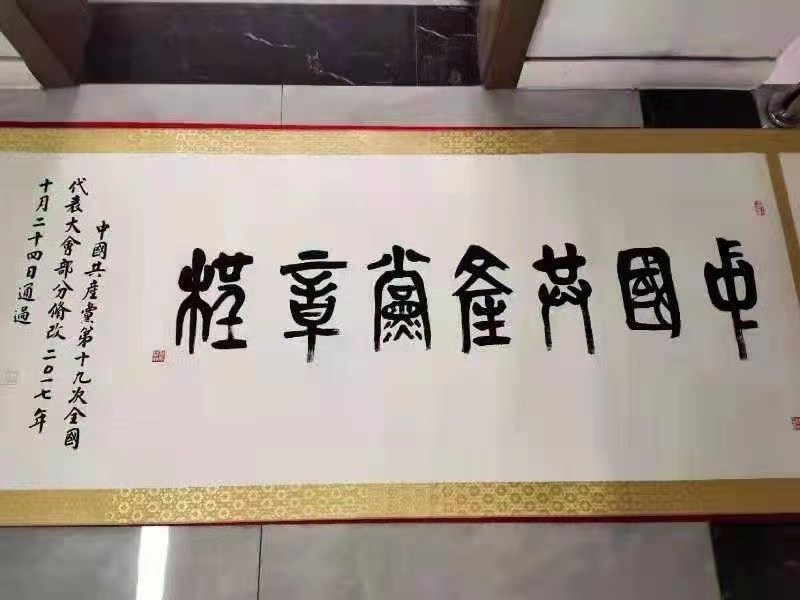 中國共產黨章程
中國共産黨第十九次全國
代表大會部分脩改 二〇一七年
十月二十四日通過